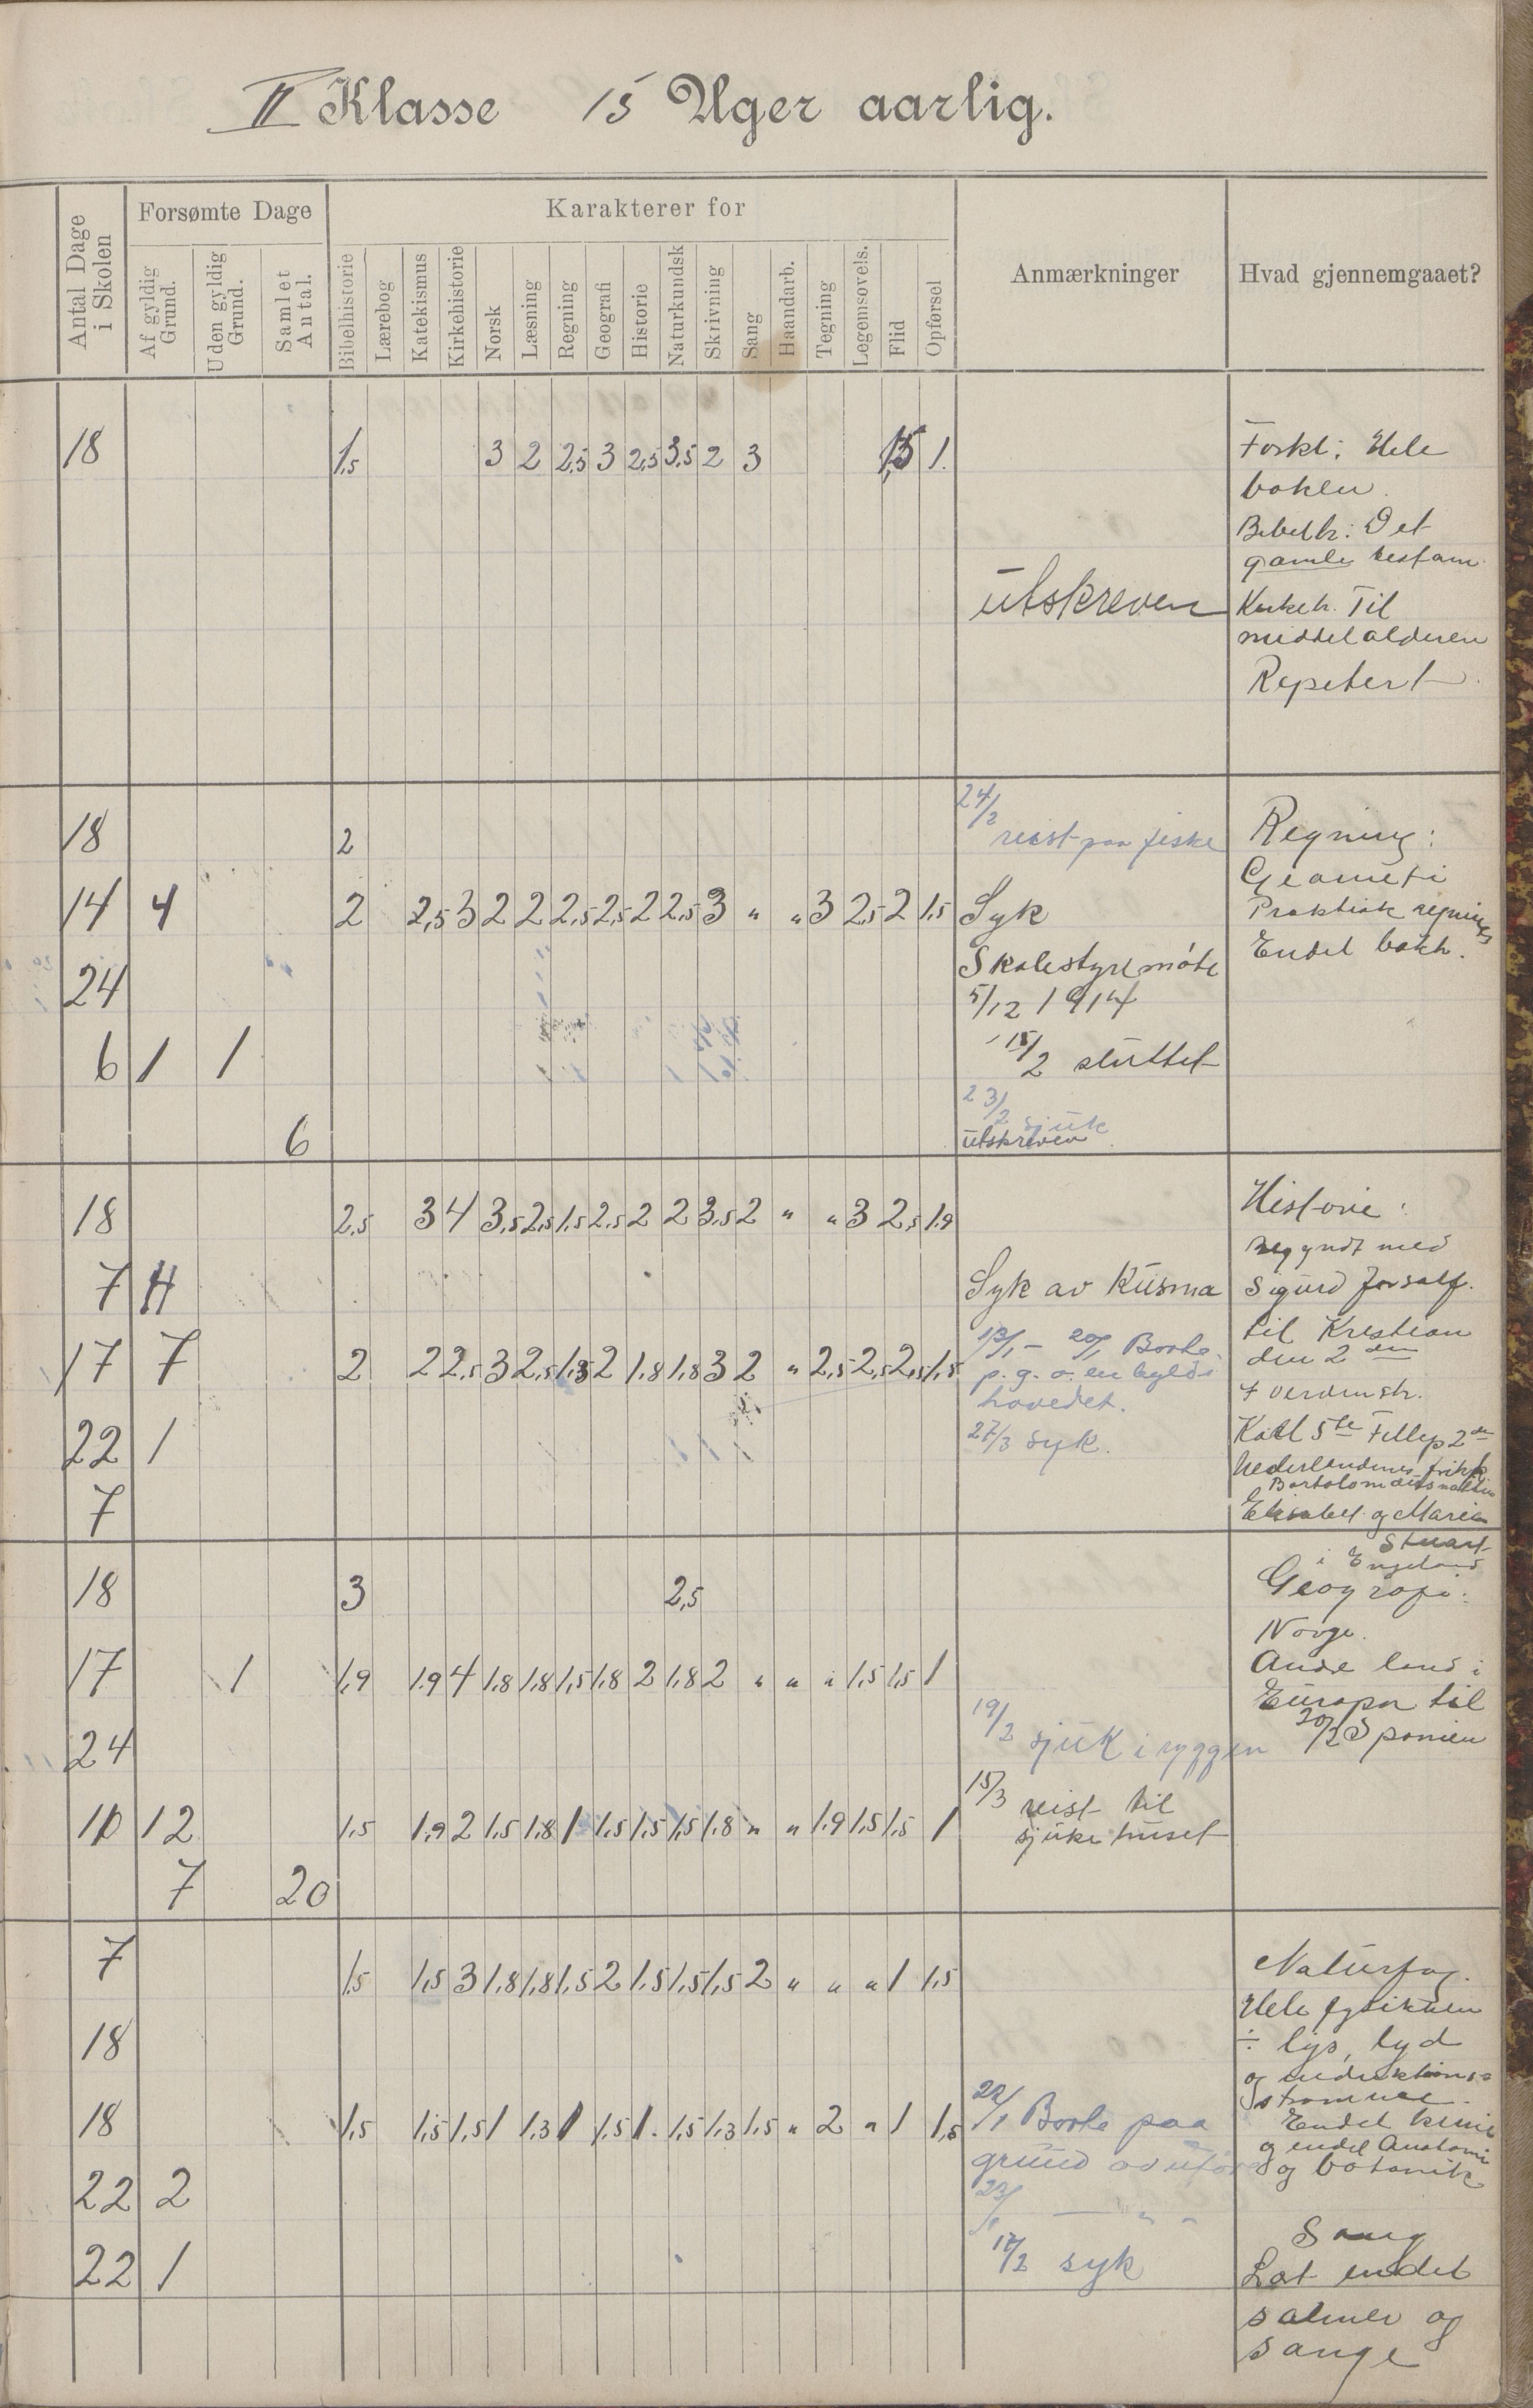 II Klasse 15 Uger aarlig.
Antal Dage i Skolen
Forsømte Dage
Af gyldig Grund.
Uden gyldig Grund.
Samlet Antal.
Karakterer for
Bibelhistorie
Lærebog
Katekismus
Kirkehistorie
Norsk
Læsning
Regning
Geografi
Historie
Naturkundsk
Skrivning
Sang
Haandarb.
Tegning
Legemsøvels.
Flid
Opførsel
Anmærkninger
Hvad gjennemgaaet?
18 1,5 3 2 2,5 3 2,5 3,5 2 3 1,5 1.
Forkl: Hele
boken.
Bibelh: Det
gamle testam.
utskreven
Kirkeh. Til
middelalderen
Repetert.
24/2
18 2 reist paa fiske
Regning:
Geometri
14 4 2 2,5 3 2 2 2,5 2,5 2 2,5 3 " " 3 2,5 2 1,5 Syk
Praktisk regning
Endel bokh.
24 Skolestyremøte
5/12 1914
6 1 1 15/2 sluttet
23/2 sjuk
6 utskreven
18 2,5 3 4 3,5 2,5 1,5 2,5 2 2 3,5 2 " " 3 2,5 1,9
Historie:
Begyndt med
7 4 Syk av Kusma
Sigurd Jorsalf.
til Kristian
den 2den
17 7 2 2 2,5 3 2,5 2 1,8 1,8 3 2 " 2,5 2,5 2,5 1,5
13/1 - 20/1 Borte
p. g. a. en byld i
hovedet.
22 1 27/3 syk.
Karl 5te Fillip 2den
Nederlandenes frihk.
7
Elisabet og Maria
Stuart
i Engeland
18 3 2,5
Geografi:
Norge.
17 1 1,9 1,9 4 1,8 1,8 1,5 1,8 2 1,8 2 " " " 1,5 1,5 1
Andre land i
Europa til
20/2 Spanien
24 19/2 sjuk i ryggen
10 12 1,5 1,9 2 1,5 1,8 1 1,5 1,5 1,5 1,8 " " 1,9 1,5 1,5 1
15/3 reist til
sjukehuset
7 20
7 1,5 1,5 3 1,8 1,8 1,5 2 1,5 1,5 1,5 2 " " " 1 1,5
Naturfag.
Hele fysikken
18
÷ lys, lyd
og induktions-
strømme.
18 1,5 1,5 1,5 1 1,3 1 1,5 1. 1,5 1,3 1,5 " 2 " 1 1,5
22/1 Borte paa
grund av uføre
Endel kemi
og endel Anatomi
og botanik
22 2 23/1 — " "
22 1 17/2 syk
Sang
Lært endel
salmer og
sange